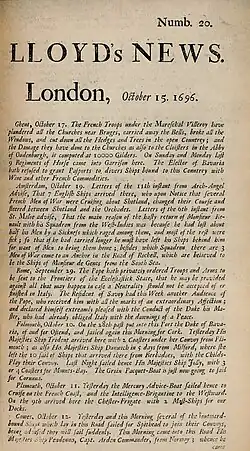 Numb. 20.
LLOYD's NEWS.
London, October 15. 1696.
Ghent, October 17. The French Troops under the Mareschal Villeroy have
plundered all the Churches near Bruges, carried away the Bells, broke all the
Windows, and cut down all the Hedges and Trees in the open Countrey; and
the Damage they have done to the Churches as also to the Cloisters in the Abby
of Oudenburgh, is computed at 10000 Gilders. On Sunday and Monday last
9 Regiments of Horse came into Garrison here. The Elector of Bavaria
hath refused to grant Pasports to divers Ships bound to this Countrey with
Wine and other French Commodities.
Amsterdam, October 19. Letters of the 11th instant from Arch-Angel
advise, That 7 English Ships arrived there, who upon Notice that several
French Men of War were Cruising about Shotland, changed their Course and
steered between Shotland and the Orchades. Letters of the 6th instant from
St. Malos advise, That the main reason of the hasty return of Monsieur
with his Squadron from the West-Indies was because he had lost about
half his Men by a Sickness which raged among them, and most of the rest were
sick; so that if he had tarried longer he must have left his Ships behind him
for want of Men to bring them home; besides which Squadron there are 3
Men of War come to an Anchor in the Road of Rochell, which are believed to
be the Ships of Monsieur de Genes from the South Sea.
Rome, September 29. The Pope hath privately ordered Troops and Arms to
be sent to the Frontiers of the Ecclesiastick State, that he may be provided
against all that may happen in case a Neutrality should not be accepted of or
in Italy. The Resident of Savoy had this Week another Audience of
the Pope, who received him with all the marks of an extraordinary Affection,
and declared himself extreamly pleased with the Conduct of the Duke his
Master, who had already obliged Italy with the dawning of a Peace.
Falmouth, October 10. On the 28th past put into this Port the Duke of Bavaria,
of and for Ostend, and sailed again this Morning for Cork. Yesterday His
Majesties Ship Trednet arrived here with 2 Coasters under her Convoy from
mouth; as also His Majesties Ship Dunwich in 5 days from Milford, where she
left the 10 sail of Ships that arrived there from Barbadoes, with the Childs
Play their Convoy. Last Night sailed hence His Majesties Ship July, with 2
or 3 Coasters for Mounts-Bay. The Groin Pacquet-Boat is just now going to sail
for Corunna.
Plimouth, October 11. Yesterday the Mercury Advice-Boat sailed hence to
Cruise on the French Coast, and the Intelligence-Brigantine to the Westward.
On the 9th arrived here the Chester-Frigate with 2 Mast-Ships for our
Docks.
Cowes, October 12. Yesterday and this Morning several of the homeward-
bound Ships which lay in this Road sailed for Spithead to join their Convoy,
being advised they will sail suddenly. This Morning came into this Road His
Majesties Ship Feudroun, Capt. Arden Commander, from Norway; whence he
came